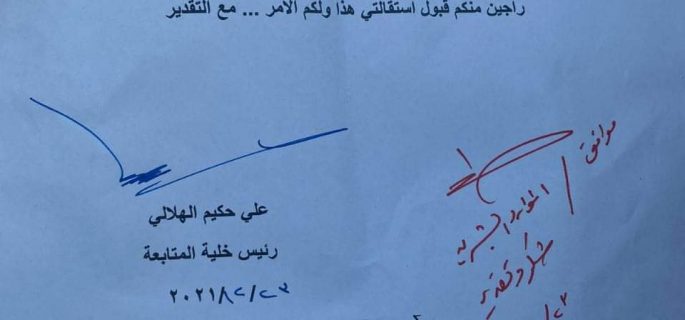 راجين منكم قبول استقالتي هذا ولكم الامر ... مع التقدير
موافق
الموارد البشرية
شكر وتقدير
علي حكيم الهلالي
رئيس خلية المتابعة